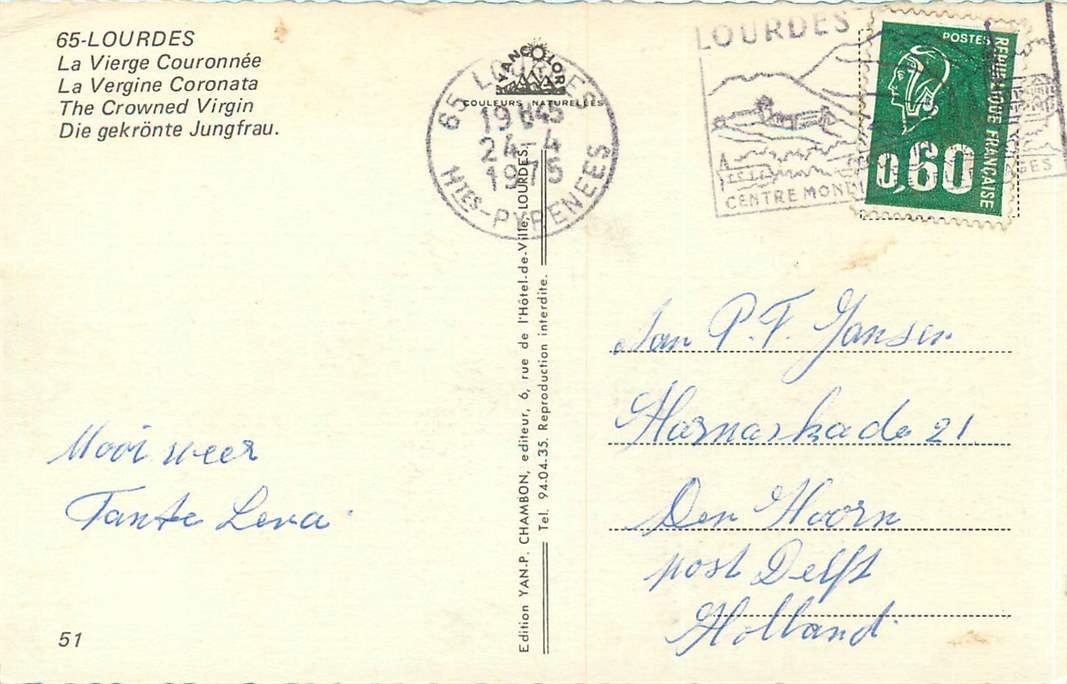 65-LOURDES
La Vierge Couronnée
La Vergine Coronata
The Crowned Virgin
Die gekrönte Jungfrau.
YANCOLOR
COULEURS NATURELLES
65 LOURDES
19 45
24-4
1975
Htes-PYRENEES
LOURDES
CENTRE MONDI
POSTES
REPUBLIQUE FRANÇAISE
0,60
Edition YAN.-P. CHAMBON, editeur, 6, rue de l'Hôtel-de-Ville, LOURDES.
Tel. 94.04-35. Reproduction interdite.
Mooi weer
Tante Lena
Jan P. F. Jansen
Harnaskade 21
Den Hoorn
post Delft
Holland
51